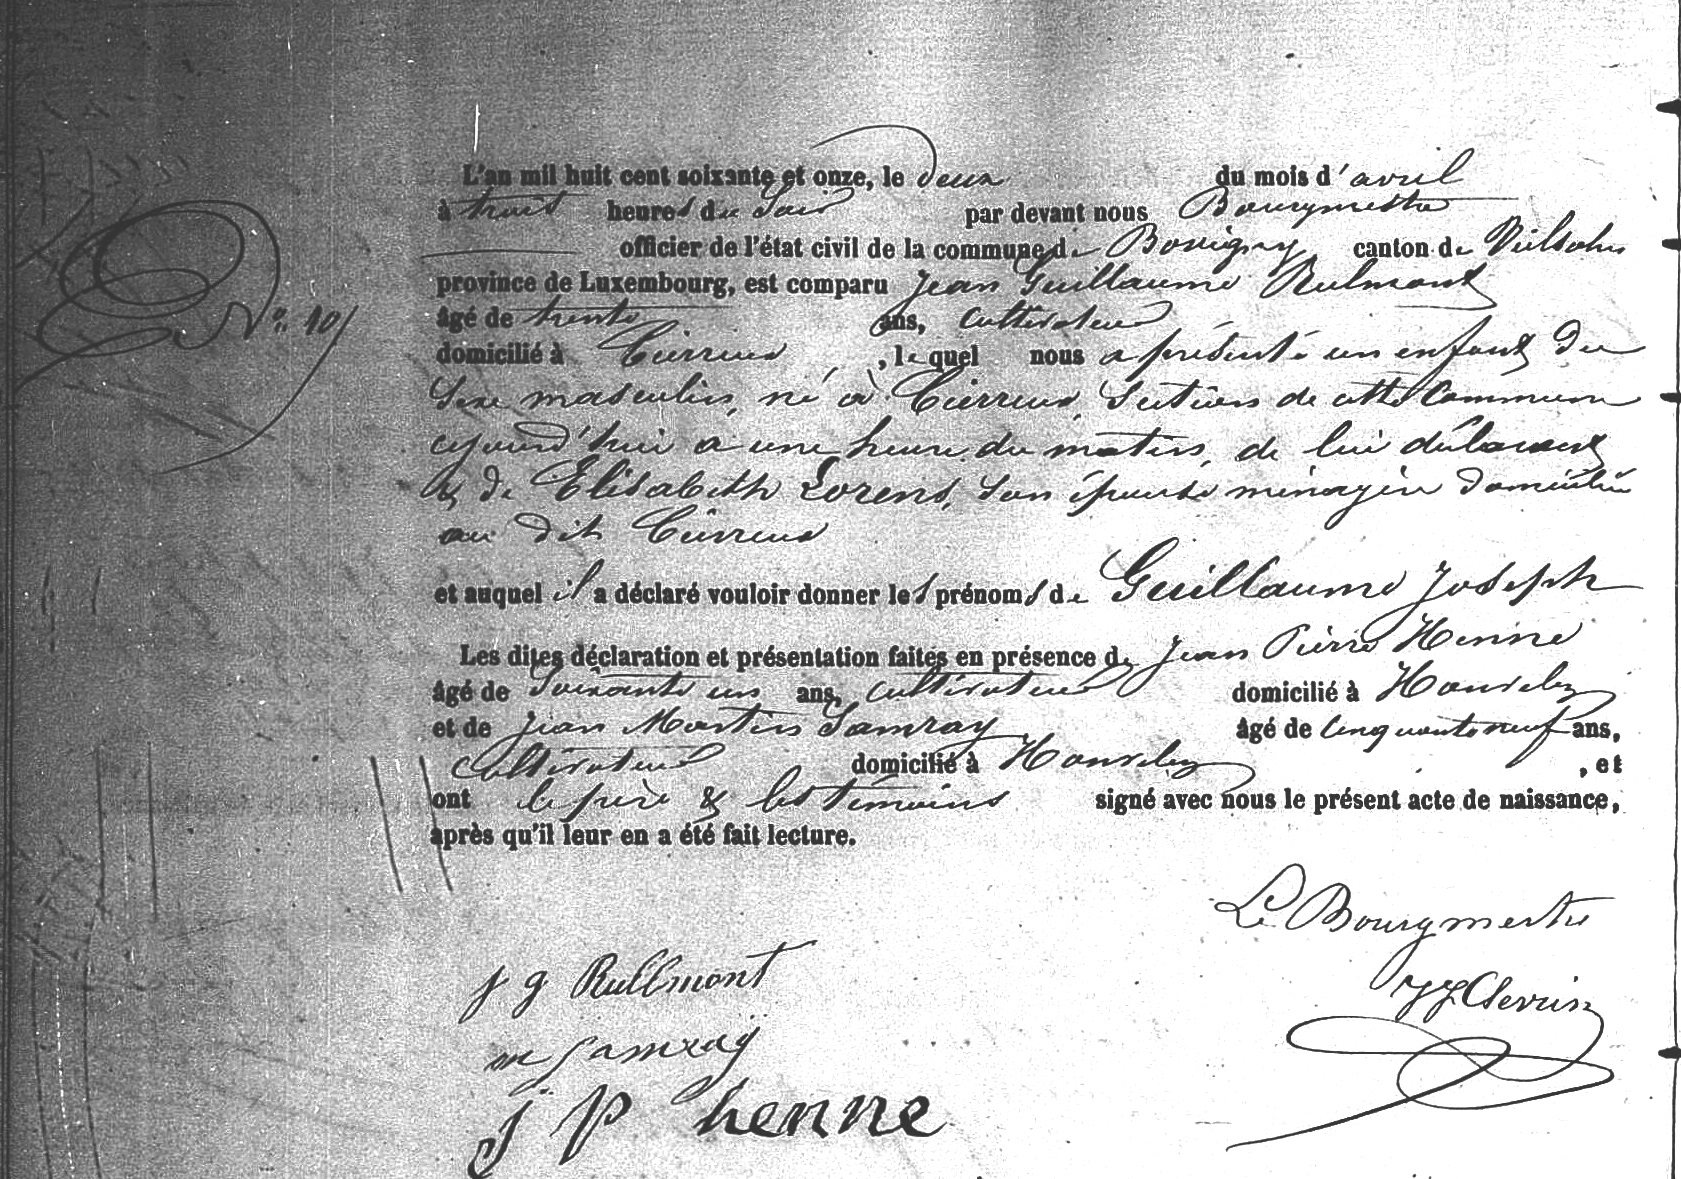 L'an mil huit cent soixante et onze, le deux du mois d'avril
à trois heures du soir par devant nous Bourgmestre
officier de l'état civil de la commune de Bovigny canton de Vielsalm
province de Luxembourg, est comparu Jean Guillaume Rulmont
âgé de trente ans, cultivateur
domicilié à Cierreux, lequel nous a présenté un enfant du
sexe masculin, né à Cierreux, section de cette commune
cejourd'hui à une heure du matin, de lui déclarant
& de Elisabeth Lorens, son épouse ménagère domiciliée
au dit Cierreux
N° 10
et auquel il a déclaré vouloir donner les prénoms de Guillaume Joseph
Les dites déclaration et présentation faites en présence de Jean Pierre Henne
âgé de soixante un ans, cultivateur domicilié à Honvelez
et de Jean Martin Samray âgé de cinquante neuf ans,
cultivateur domicilié à Honvelez, et
ont le père & les témoins signé avec nous le présent acte de naissance,
après qu'il leur en a été fait lecture.
Le Bourgmestre
j g Rullmont
m Samray
j p henne